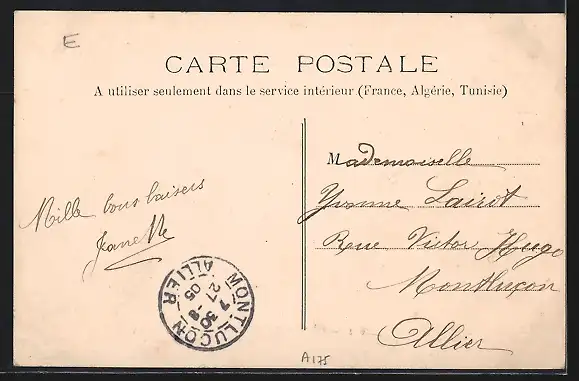 E
CARTE POSTALE
A utiliser seulement dans le service intérieur (France, Algérie, Tunisie)
Mille bons baisers
Jeanette
Mademoiselle
Yvonne Lairot
Rue Victor Hugo
Montluçon
Allier
MONTLUÇON
ALLIER
27
05
A175